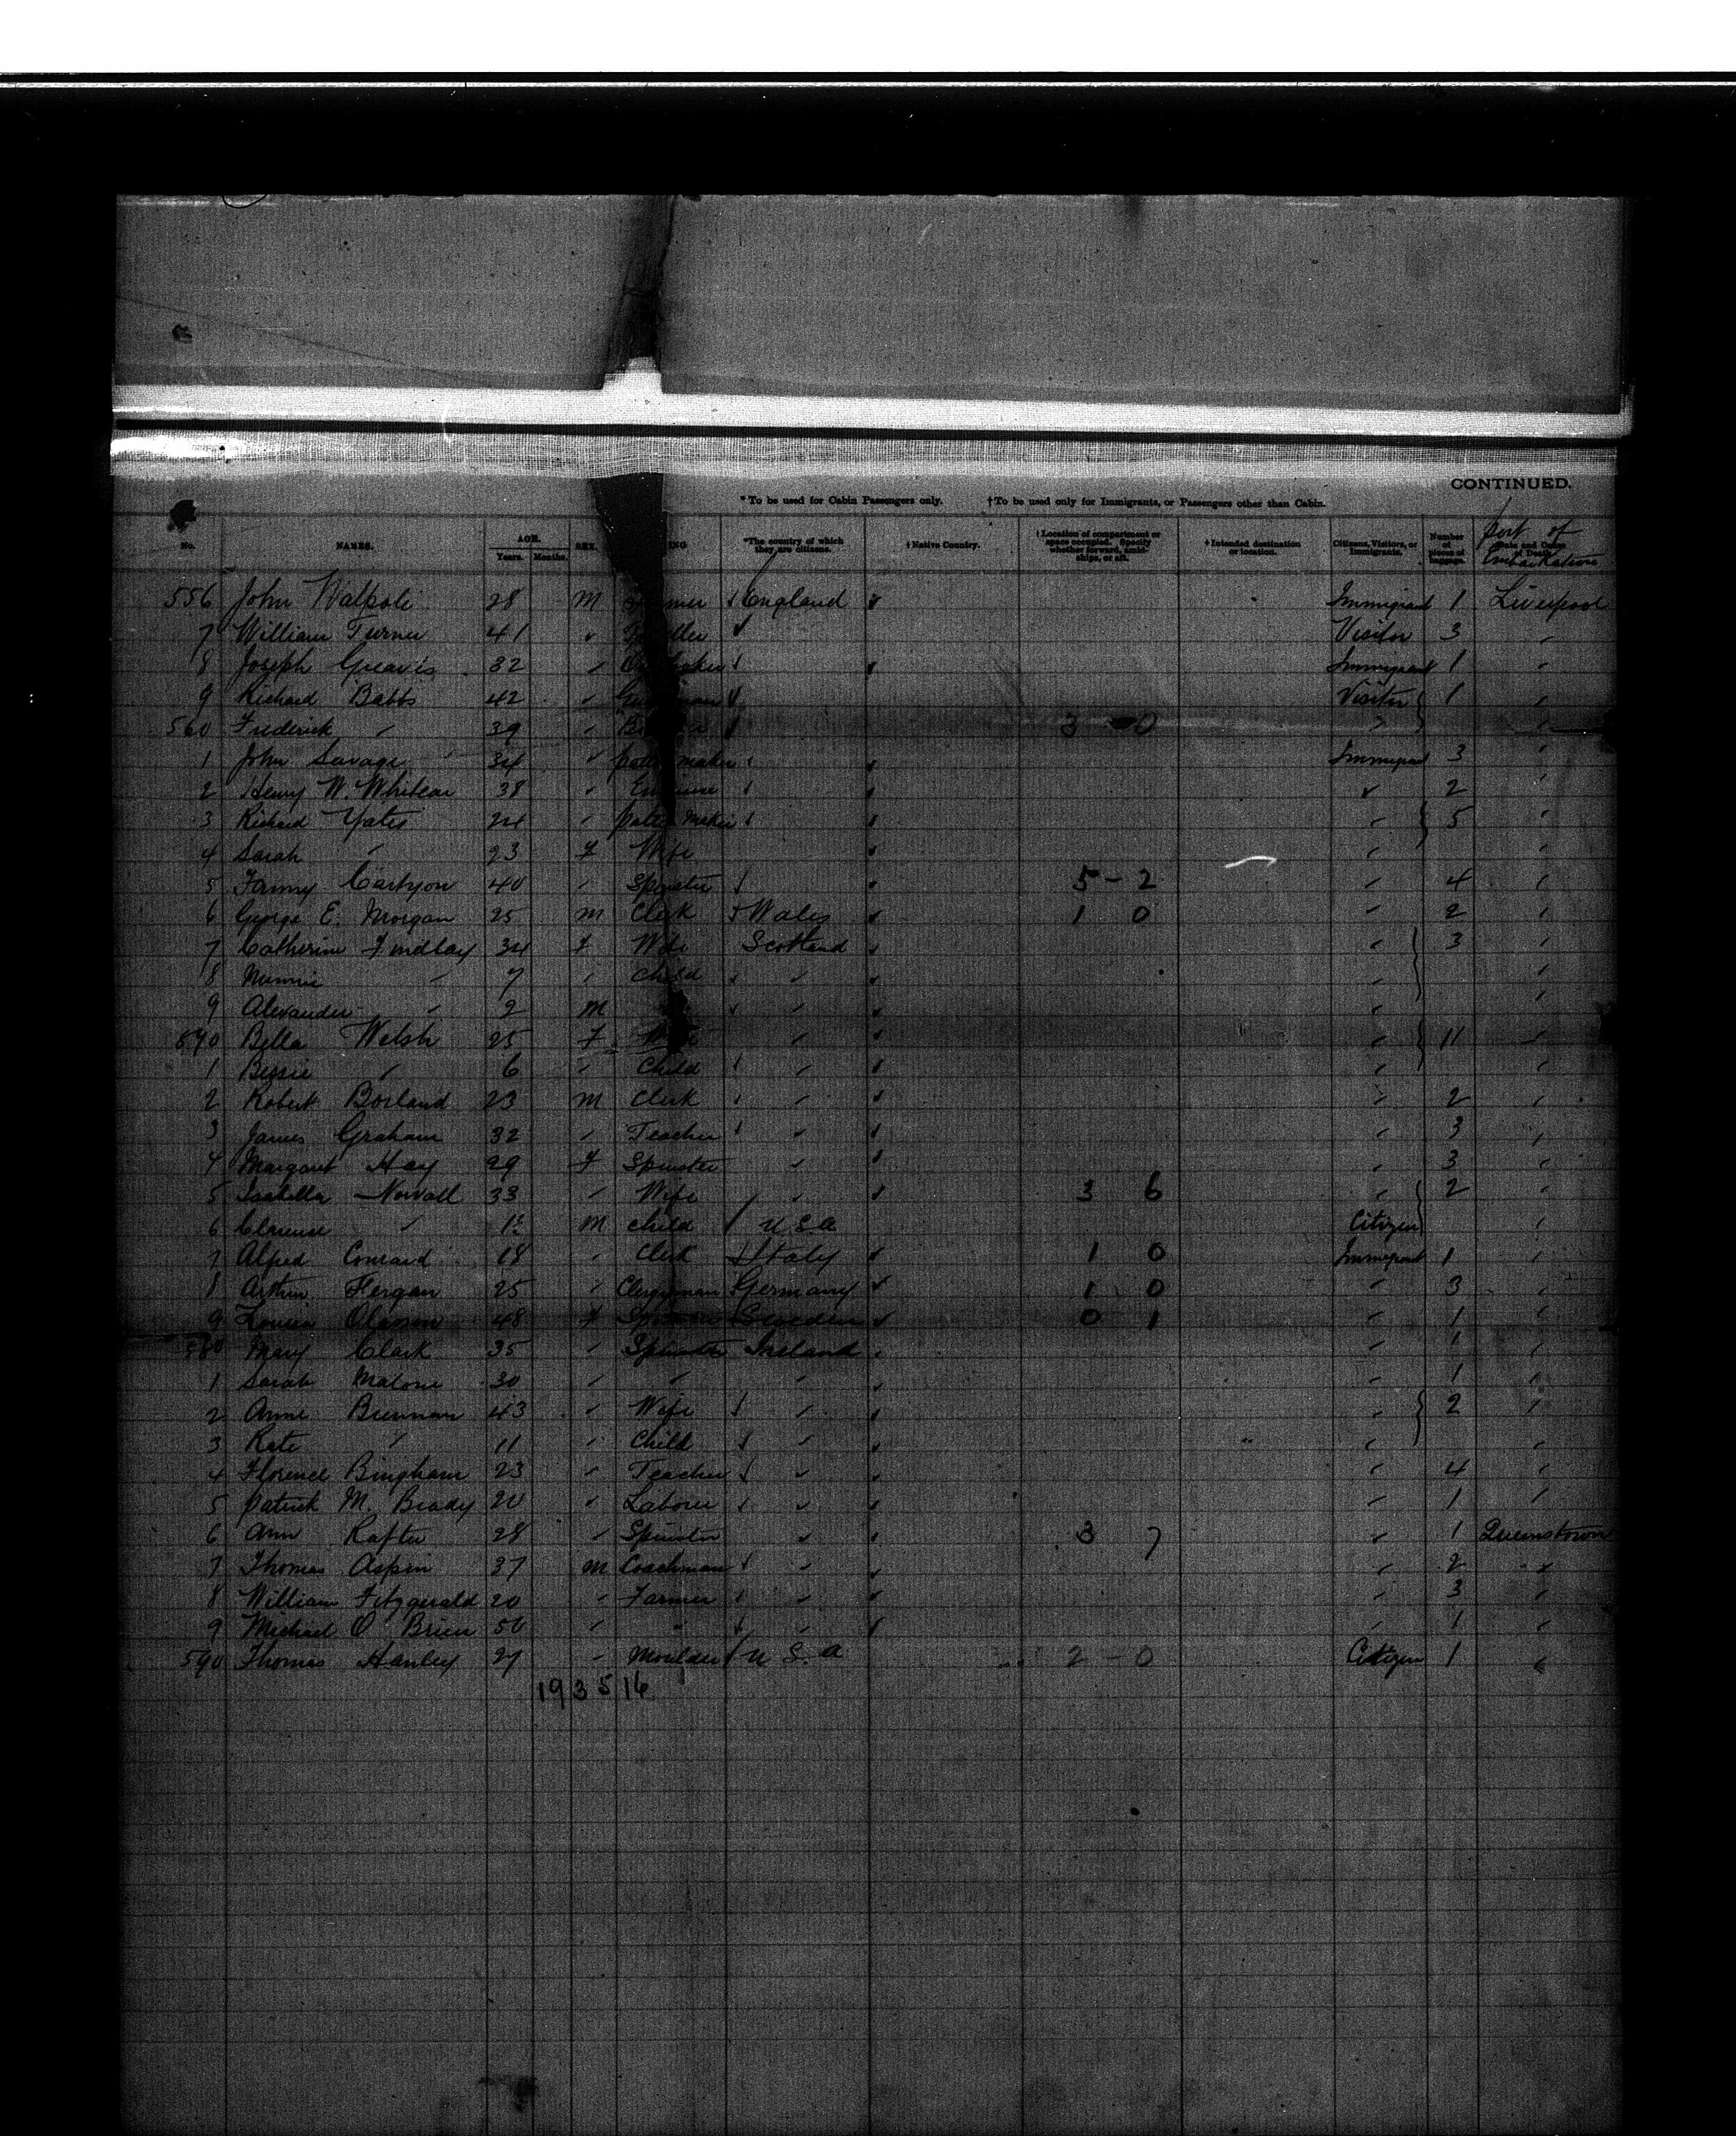 CONTINUED.
* To be used for Cabin Passengers only. † To be used only for Immigrants, or Passengers other than Cabin.
No. NAMES. AGE. Years. Months. SEX. *The country of which they are citizens. † Native Country. † Location of compartment or space occupied. Specify whether forward, amidships, or aft. † Intended destination or location. Citizens, Visitors, or Immigrants. Number of pieces of baggage. Date and Cause of Death. port of Embarkation
556 John Walpole 28 M England Immigrant 1 Liverpool
7 William Turner 41 Visitor 3
8 Joseph Greaves 32 Immigrant 1
9 Richard Babbs 42 Visitor 1
560 Frederick 39 3 0
1 John Savage 34 maker Immigrant 3
2 Henry W. 38 2
3 Richard Yates 24 Maker 5
4 Sarah 23 F Wife
5 Fanny 40 Spinster 5 - 2 4
6 George E. Morgan 25 M Clerk Wales 1 0 2
7 Catherine Findlay 34 F Wife Scotland 3
8 7 Child
9 Alexander 2 M
570 Bella Welsh 25 F 11
1 Bessie 6 Child
2 Robert Borland 23 M Clerk 2
3 James Graham 32 Teacher 3
4 Margaret Hay 29 F Spinster 3
5 Isabella 33 Wife 3 6 2
6 Clarence M Child U S A Citizen
7 Alfred Conrard 18 Clerk Italy 1 0 Immigrant 1
8 Arthur Fergan 25 Clergyman Germany 1 0 3
9 Louisa 48 F Sweden 0 1 1
580 Mary Clark 35 Spinster Ireland 1
1 Sarah Malone 30 1
2 Anne Brennan 43 Wife 2
3 Kate 11 Child
4 Florence Bingham 23 Teacher 4
5 Patrick M. Brady 20 Laborer 1
6 Ann Rafter 28 Spinster 3 7 1 Queenstown
7 Thomas Aspin 37 M Coachman 2
8 William Fitzgerald 20 Farmer 3
9 Michael O'Brien 50 1
590 Thomas Hanley 27 Moulder U S. A 2 - 0 Citizen 1
19 3 5 16